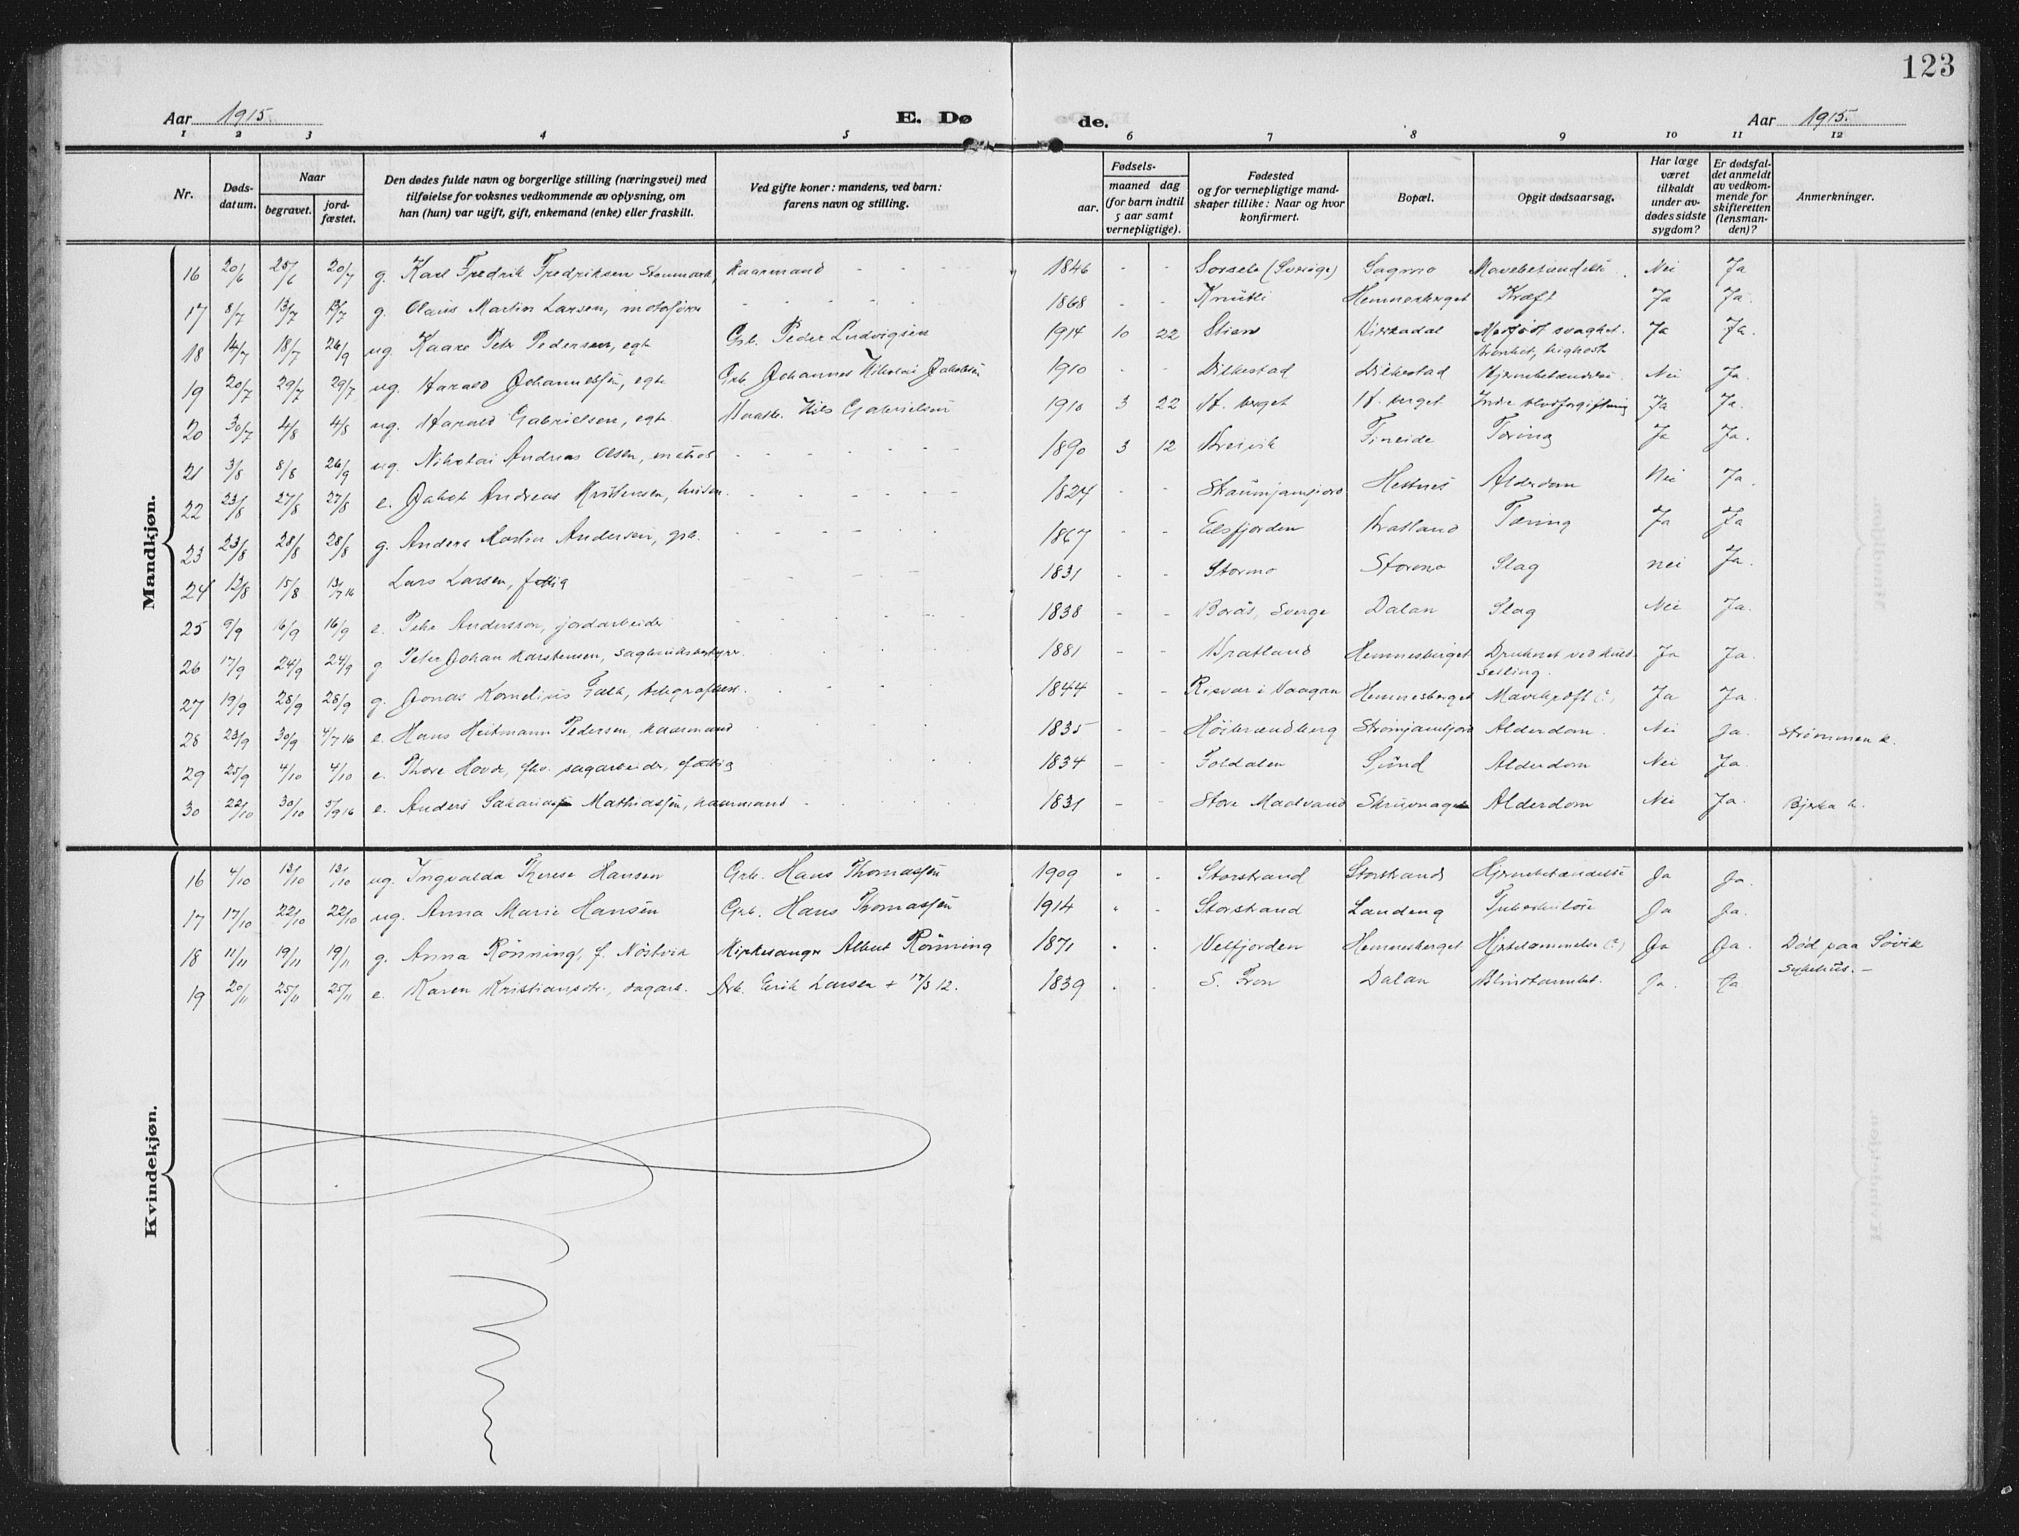 123
Aar 1915. E. Dø de. Aar 1915.
1 2 3 4 5 6 7 8 9 10 11 12
Nr. Døds-datum. Naar begravet. jord-fæstet. Den dødes fulde navn og borgerlige stilling (næringsvei) med tilføielse for voksnes vedkommende av oplysning, om han (hun) var ugift, gift, enkemand (enke) eller fraskilt. Ved gifte koner: mandens, ved barn: farens navn og stilling. Fødsels- aar. maaned dag (for barn indtil 5 aar samt vernepligtige). Fødested og for vernepligtige mand-skaper tillike: Naar og hvor konfirmert. Bopæl. Opgit dødsaarsag. Har læge været tilkaldt under av-dødes sidste sygdom? Er dødsfal-det anmeldt av vedkom-mende for skifteretten (lensman-den)? Anmerkninger.
Mandkjøn.
16 20/6 25/6 20/7 g. Karl Fredrik Fredriksen Stenmark, kaarmand - - - 1846 - - Sorsele (Sverige) Sagmo Mavebetændelse. Nei Ja
17 8/7 13/7 13/7 g. Olaus Martin Larsen, motorfører - - - 1868 - - Hemnesberget Kræft Ja Ja.
18 14/7 18/7 26/9 ug. Kaare Petr Pedersen, egte Grb. Peder Ludvigsen 1914 10 22 Stien Medfødt svaghet. Ja Ja.
Bronkit, kighoste
19 20/7 29/7 29/7 ug. Harald Johannessen, egte Grb. Johannes Nikolai Jakobsen 1910 - - Dilkestad Dilkestad Hjernebetændelse. Nei Ja.
20 30/7 4/8 4/8 ug. Harald Gabrielsen, egte Nils Gabrielsen 1910 3 22 H. berget H. berget Indre blodforgiftning Ja Ja.
21 3/8 8/8 26/9 ug. Nikolai Andreas Olsen, matros - - - 1890 3 12 Breivik Fineide Tæring Ja Ja.
22 23/8 27/8 27/8 e. Jakob Andreas Kristensen, - - - 1824 - - Hestnes Alderdom Nei Ja.
23 23/8 28/8 28/8 g. Anders Martin Andersen, grb. - - - 1867 - - Elsfjorden Bratland Tæring Ja Ja
24 13/8 15/8 13/7 16 Lars Larsen, fattig - - - 1831 - - Stormo Stormo Slag nei Ja.
25 9/9 16/9 16/9 e. Petr Andersson, jordarbeider - - - 1838 - - Borås, Sverge Dalan Slag Nei Ja.
26 17/9 24/9 24/9 g Peter Johan Karstensen, sagbruksbestyrer. 1881 - - Bratland Hemnesberget Druknet ved kuld- Ja Ja.
seiling.
27 19/9 28/9 28/9 g. Jonas Kornelius Falk, - - - 1844 - - Risvær i Vaagan Hemnesberget Mavekræft (?) Ja Ja.
28 23/9 30/9 4/7 16 e. Hans Heitmann Pedersen, kaarmand - - - 1835 - - Alderdom. Nei Ja. Strømmen k.
29 25/9 4/10 4/10 e. Thore Hovde, fhv. sagarbeider, fattig - - - 1834 - - Foldalen Sund Alderdom Nei Ja.
30 22/10 30/10 5/9 16 e. Anders Sakarias Mathiassen, kaarmand - - - 1831 - - Store Maalvand Alderdom Nei Ja. Bjerka k.
Kvindekjøn.
16 4/10 13/10 13/10 ug. Ingvalda Therese Hansen Grb. Hans Thomassen 1909 - - Storstrand Storstrand Hjernebetændelse Ja Ja.
17 17/10 22/10 22/10 ug. Anna Marie Hansen Grb. Hans Thomassen 1914 - - Storstrand Landeng Tuberkulose Ja Ja.
18 11/11 19/11 19/11 g. Anna Rønning, f. Nøstvik Kirkesanger Albert Rønning 1871 - - Velfjorden Hemnesberget Hjertelammelse (?) Ja Ja. Død paa Søvik
Sykehus. -
19 20/11 25/11 25/11 e. Karen Kristiansdtr., dagarb. Arb. Erik Larsen + 17/3 12. 1839 - - S. Fron Dalan Blindtarmbet. Ja. Ja